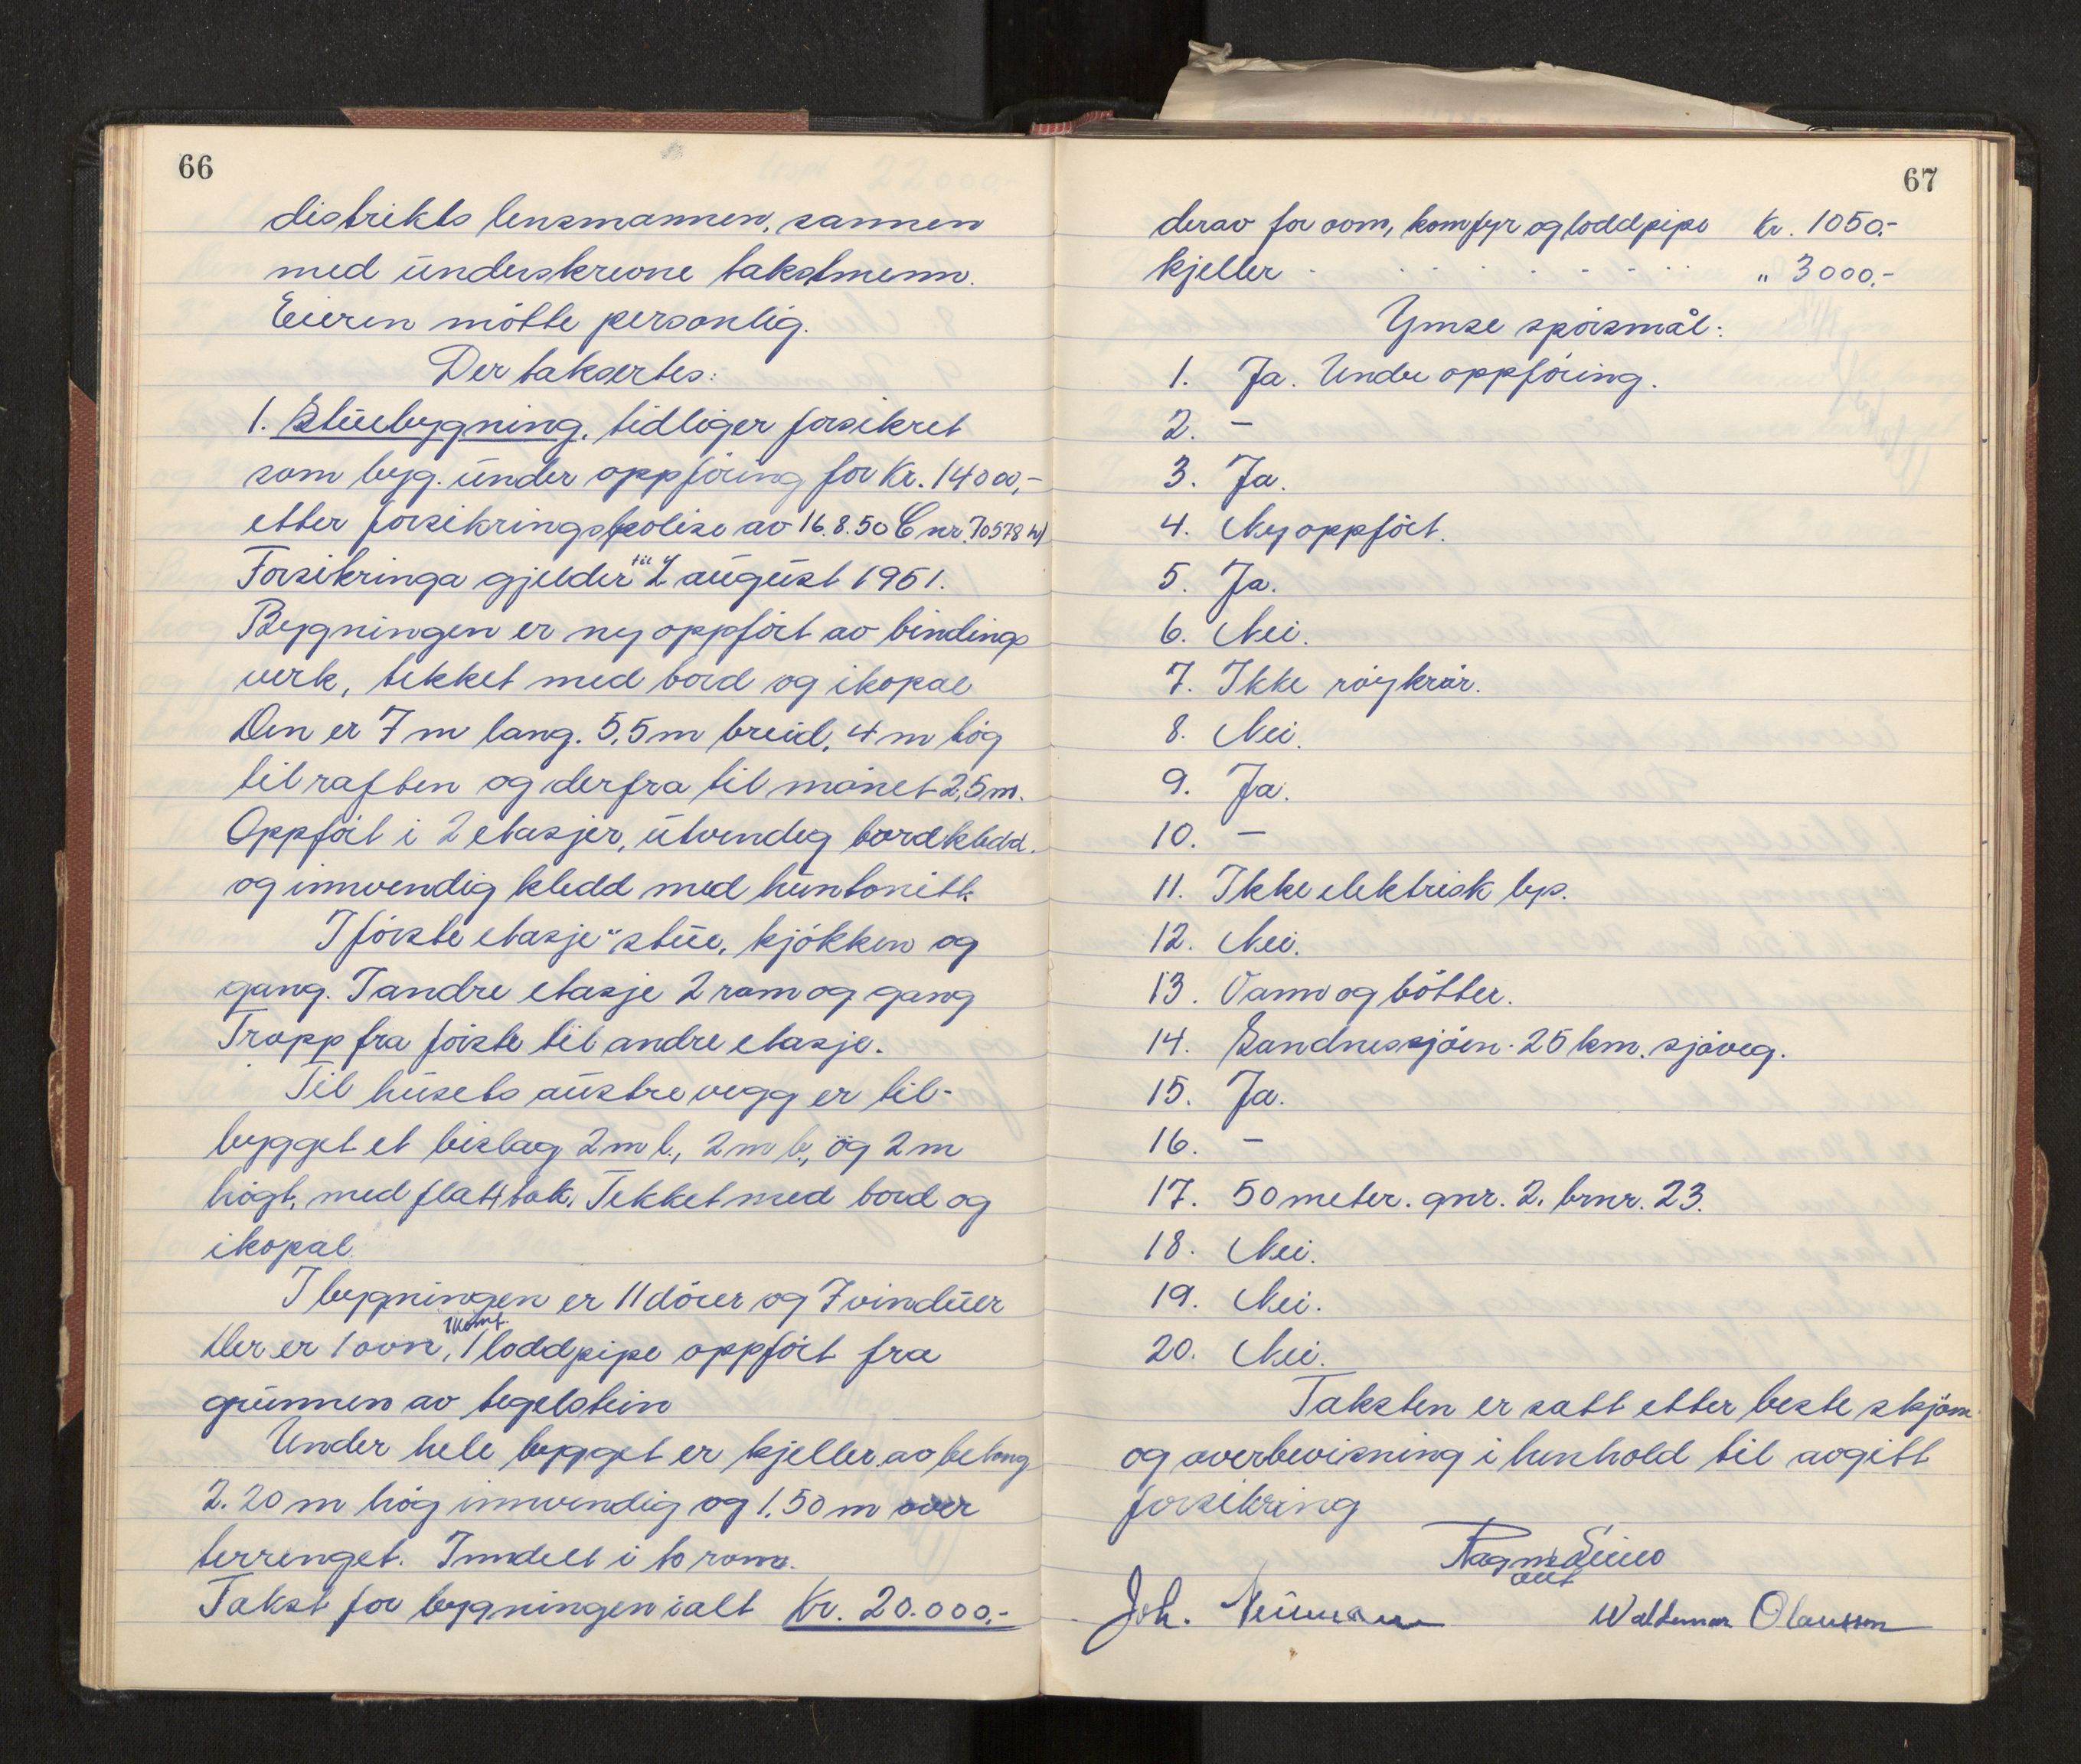 66
distrikts lensmannen, sammen
med underskrevne takstmenn.
Eieren møtte personlig.
Der taksertes:
1. Stuebygning, tidliger forsikret
som byg. under oppföring for Kr. 14000,-
etter forsikringspolise av 16.8.50 C nr. 70578
Forsikringa gjelder til 2 august 1951.
Bygningen er ny oppfört av bindings
verk, tekket med bord og ikopal
Den er 7 m lang. 5,5 m breid, 4 m hög
til raften og derfra til mönet 2,5 m.
Oppfört i 2 etasjer, utvendig bordkledd.
og innvendig kledd med huntonitt.
I förste etasje stue, kjökken og
gang. I andre etasje 2 rom og gang
Tropp fra förste til andre etasje.
Til husets austre vegg er til-
bygget et bislag 2 m l., 2 m b., og 2 m
högt, med flatt tak. Tekket med bord og
ikopal.
I bygningen er 11 dörer og 7 vinduer
Der er 1 ovn, 1 komf. 1 loddpipe oppfört fra
grunnen av tegelstein
Under hele bygget er kjeller av betong
2.20 m hög innvendig og 1,50 m over
terrenget. Inndelt i to rom.
Takst for bygningen ialt Kr. 20.000,-
67
derav for ovn, komfyr og loddpipe Kr. 1050,-
kjeller . . . . . . . . " 3000,-
Ymse spörsmål:
1. Ja. Under oppföring.
2. —
3. Ja.
4. Ny oppfört.
5. Ja.
6. Nei.
7. Ikke röykrör.
8. Nei.
9. Ja.
10. —
11. Ikke elektrisk lys.
12. Nei.
13. Vann og bötter.
14. Sandnessjöen. 25 km. sjöveg.
15. Ja.
16. —
17. 50 meter. gnr. 2. brnr. 23.
18. Nei.
19. Nei.
20. Nei.
Taksten er satt etter beste skjönn
og overbevisning i henhold til avgitt
forsikring
Joh. Neumann Waldemar Olaussen